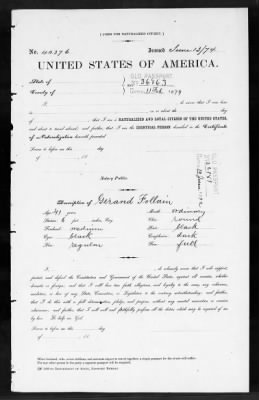 [FORM FOR NATURALIZED CITIZEN.]
No. 40376 Issued June 12/74
UNITED STATES OF AMERICA.
State of
County of
OLD PASSPORT
No 36763
11 Feb 1874
I, do swear that I was born
in on or about the
day of , that I am a NATURALIZED AND LOYAL CITIZEN OF THE UNITED STATES,
and about to travel abroad; and further, that I am the IDENTICAL PERSON described in the Certificate
of Naturalization herewith presented.
Sworn to before me this day
of , 18
Notary Public.
Description of Gerand Follain
Age: 49 years. Mouth: ordinary
Stature: 5 feet inches, Eng. Chin: round
Forehead: medium Hair: black
Eyes: black Complexion: dark
Nose: regular Face: full
I, do solemnly swear that I will support,
protect and defend the Constitution and Government of the United States against all enemies, whether
domestic or foreign; and that I will bear true faith, allegiance, and loyalty to the same, any ordinance,
resolution, or law of any State, Convention, or Legislature to the contrary notwithstanding; and further,
that I do this with a full determination, pledge, and purpose, without any mental reservation or evasion
whatsoever; and further, that I will well and faithfully perform all the duties which may be required of me
by law: So help me God.
Sworn to before me this day
of , 18